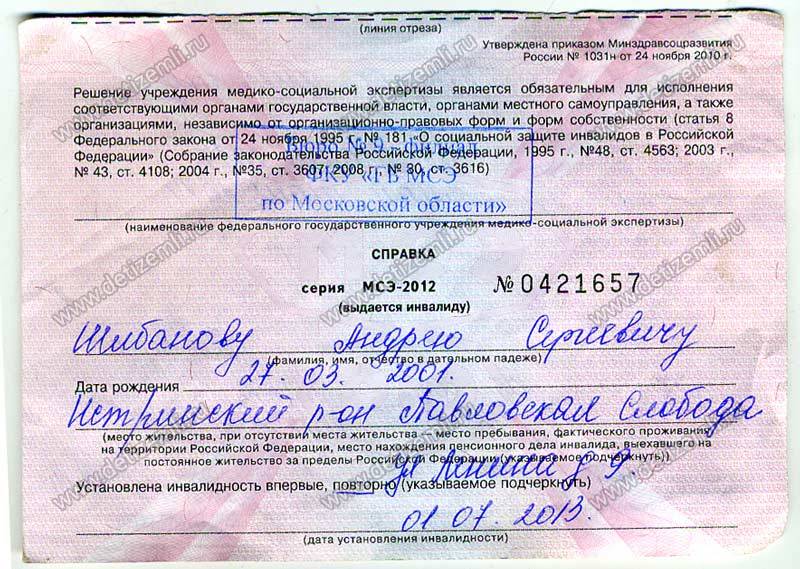 (линия отреза)
Утверждена приказом Минздравсоцразвития
России № 1031н от 24 ноября 2010 г.
Решение учреждения медико-социальной экспертизы является обязательным для исполнения
соответствующими органами государственной власти, органами местного самоуправления, а также
организациями, независимо от организационно-правовых форм и форм собственности (статья 8
Федерального закона от 24 ноября 1995 г. № 181 «О социальной защите инвалидов в Российской
Федерации» (Собрание законодательства Российской Федерации, 1995 г., №48, ст. 4563; 2003 г.,
№ 43, ст. 4108; 2004 г., №35, ст. 3607; 2008 г., № 30, ст. 3616)
Бюро № 9 - филиал
ФКУ «ГБ МСЭ
по Московской области»
(наименование федерального государственного учреждения медико-социальной экспертизы)
СПРАВКА
серия МСЭ-2012 № 0421657
(выдается инвалиду)
Шлбанову Андрею Сергеевичу
(фамилия, имя, отчество в дательном падеже)
Дата рождения 27. 03. 2001.
Истринский р-он Павловская Слобода
(место жительства, при отсутствии места жительства – место пребывания, фактического проживания
на территории Российской Федерации, место нахождения пенсионного дела инвалида, выехавшего на
постоянное жительство за пределы Российской Федерации (указываемое подчеркнуть,))
ул Ленина д 9.
Установлена инвалидность впервые, повторно (указываемое подчеркнуть)
01 07. 2013.
(дата установления инвалидности)
www.detizemli.ru